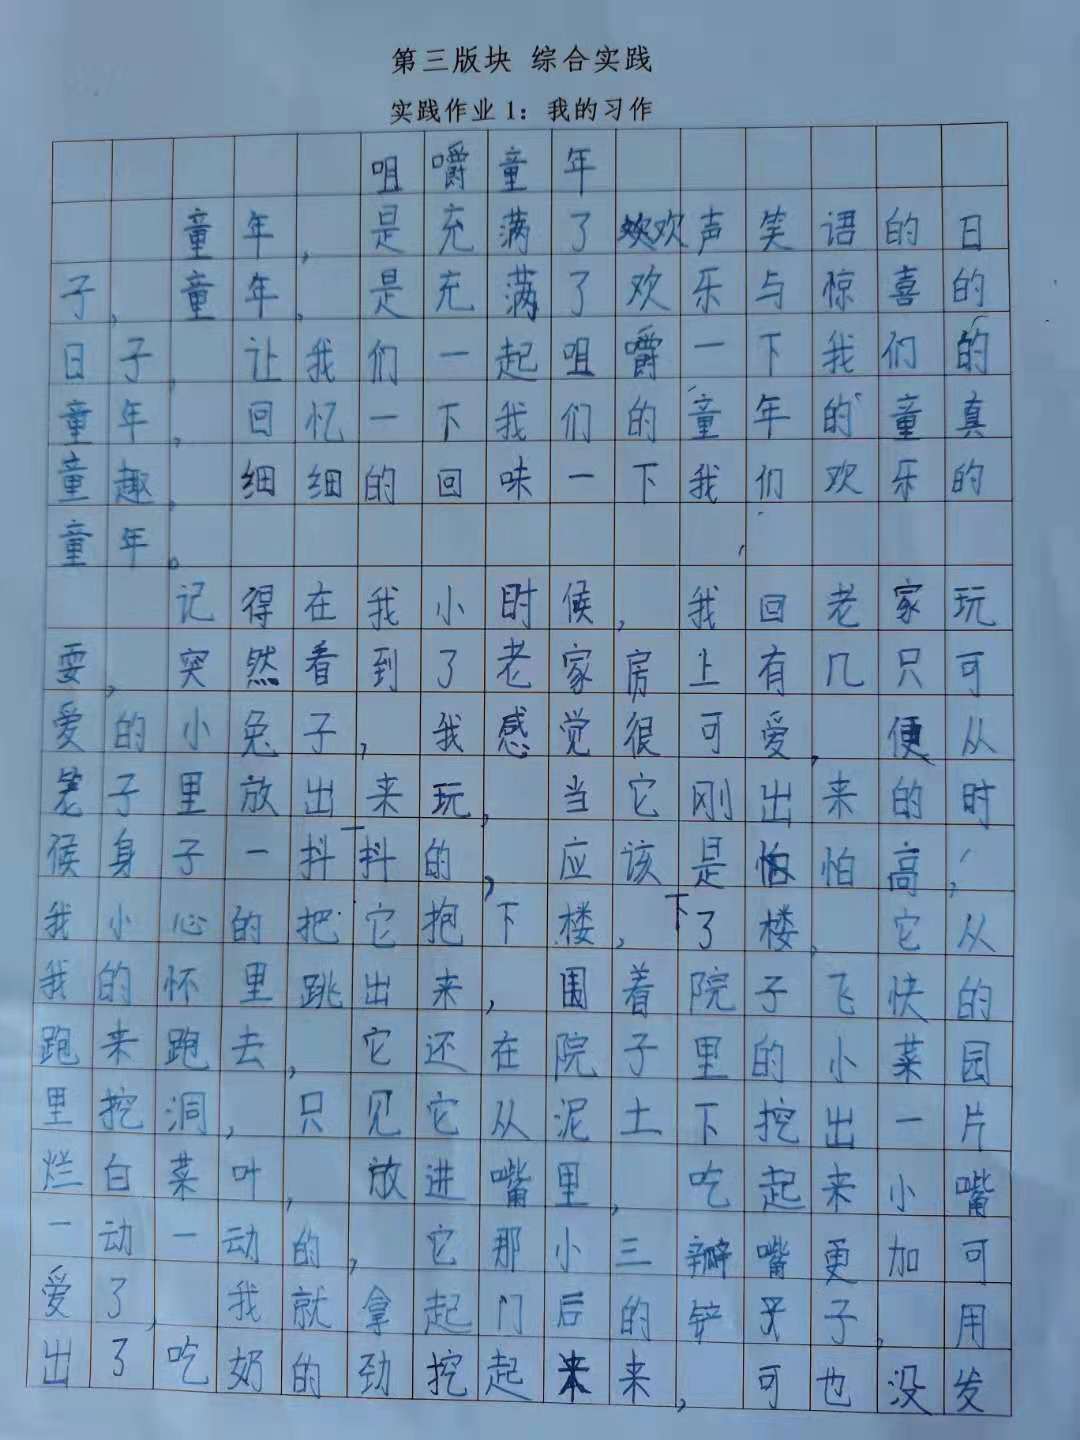 第三版块 综合实践
实践作业1：我的习作
咀嚼童年
童年，是充满了欢声笑语的日
子，童年，是充满了欢乐与惊喜的
日子，让我们一起咀嚼一下我们的
童年，回忆一下我们的童年的童真
童趣，细细的回味一下我们欢乐的
童年。
记得在我小时候，我回老家玩
耍，突然看到了老家房上有几只可
爱的小兔子，我感觉很可爱，便从
笼子里放出来玩，当它刚出来的时
候身子一抖一抖的，应该是怕高，
我小心的把它抱下楼，下了楼，它从
我的怀里跳出来，围着院子飞快的
跑来跑去，它还在院子里的小菜园
里挖洞，只见它从泥土下挖出一片
烂白菜叶，放进嘴里，吃起来小嘴
一动一动的，它那小三瓣嘴更加可
爱了，我就拿起门后的铲子，用
出了吃奶的劲挖起来，可也没发